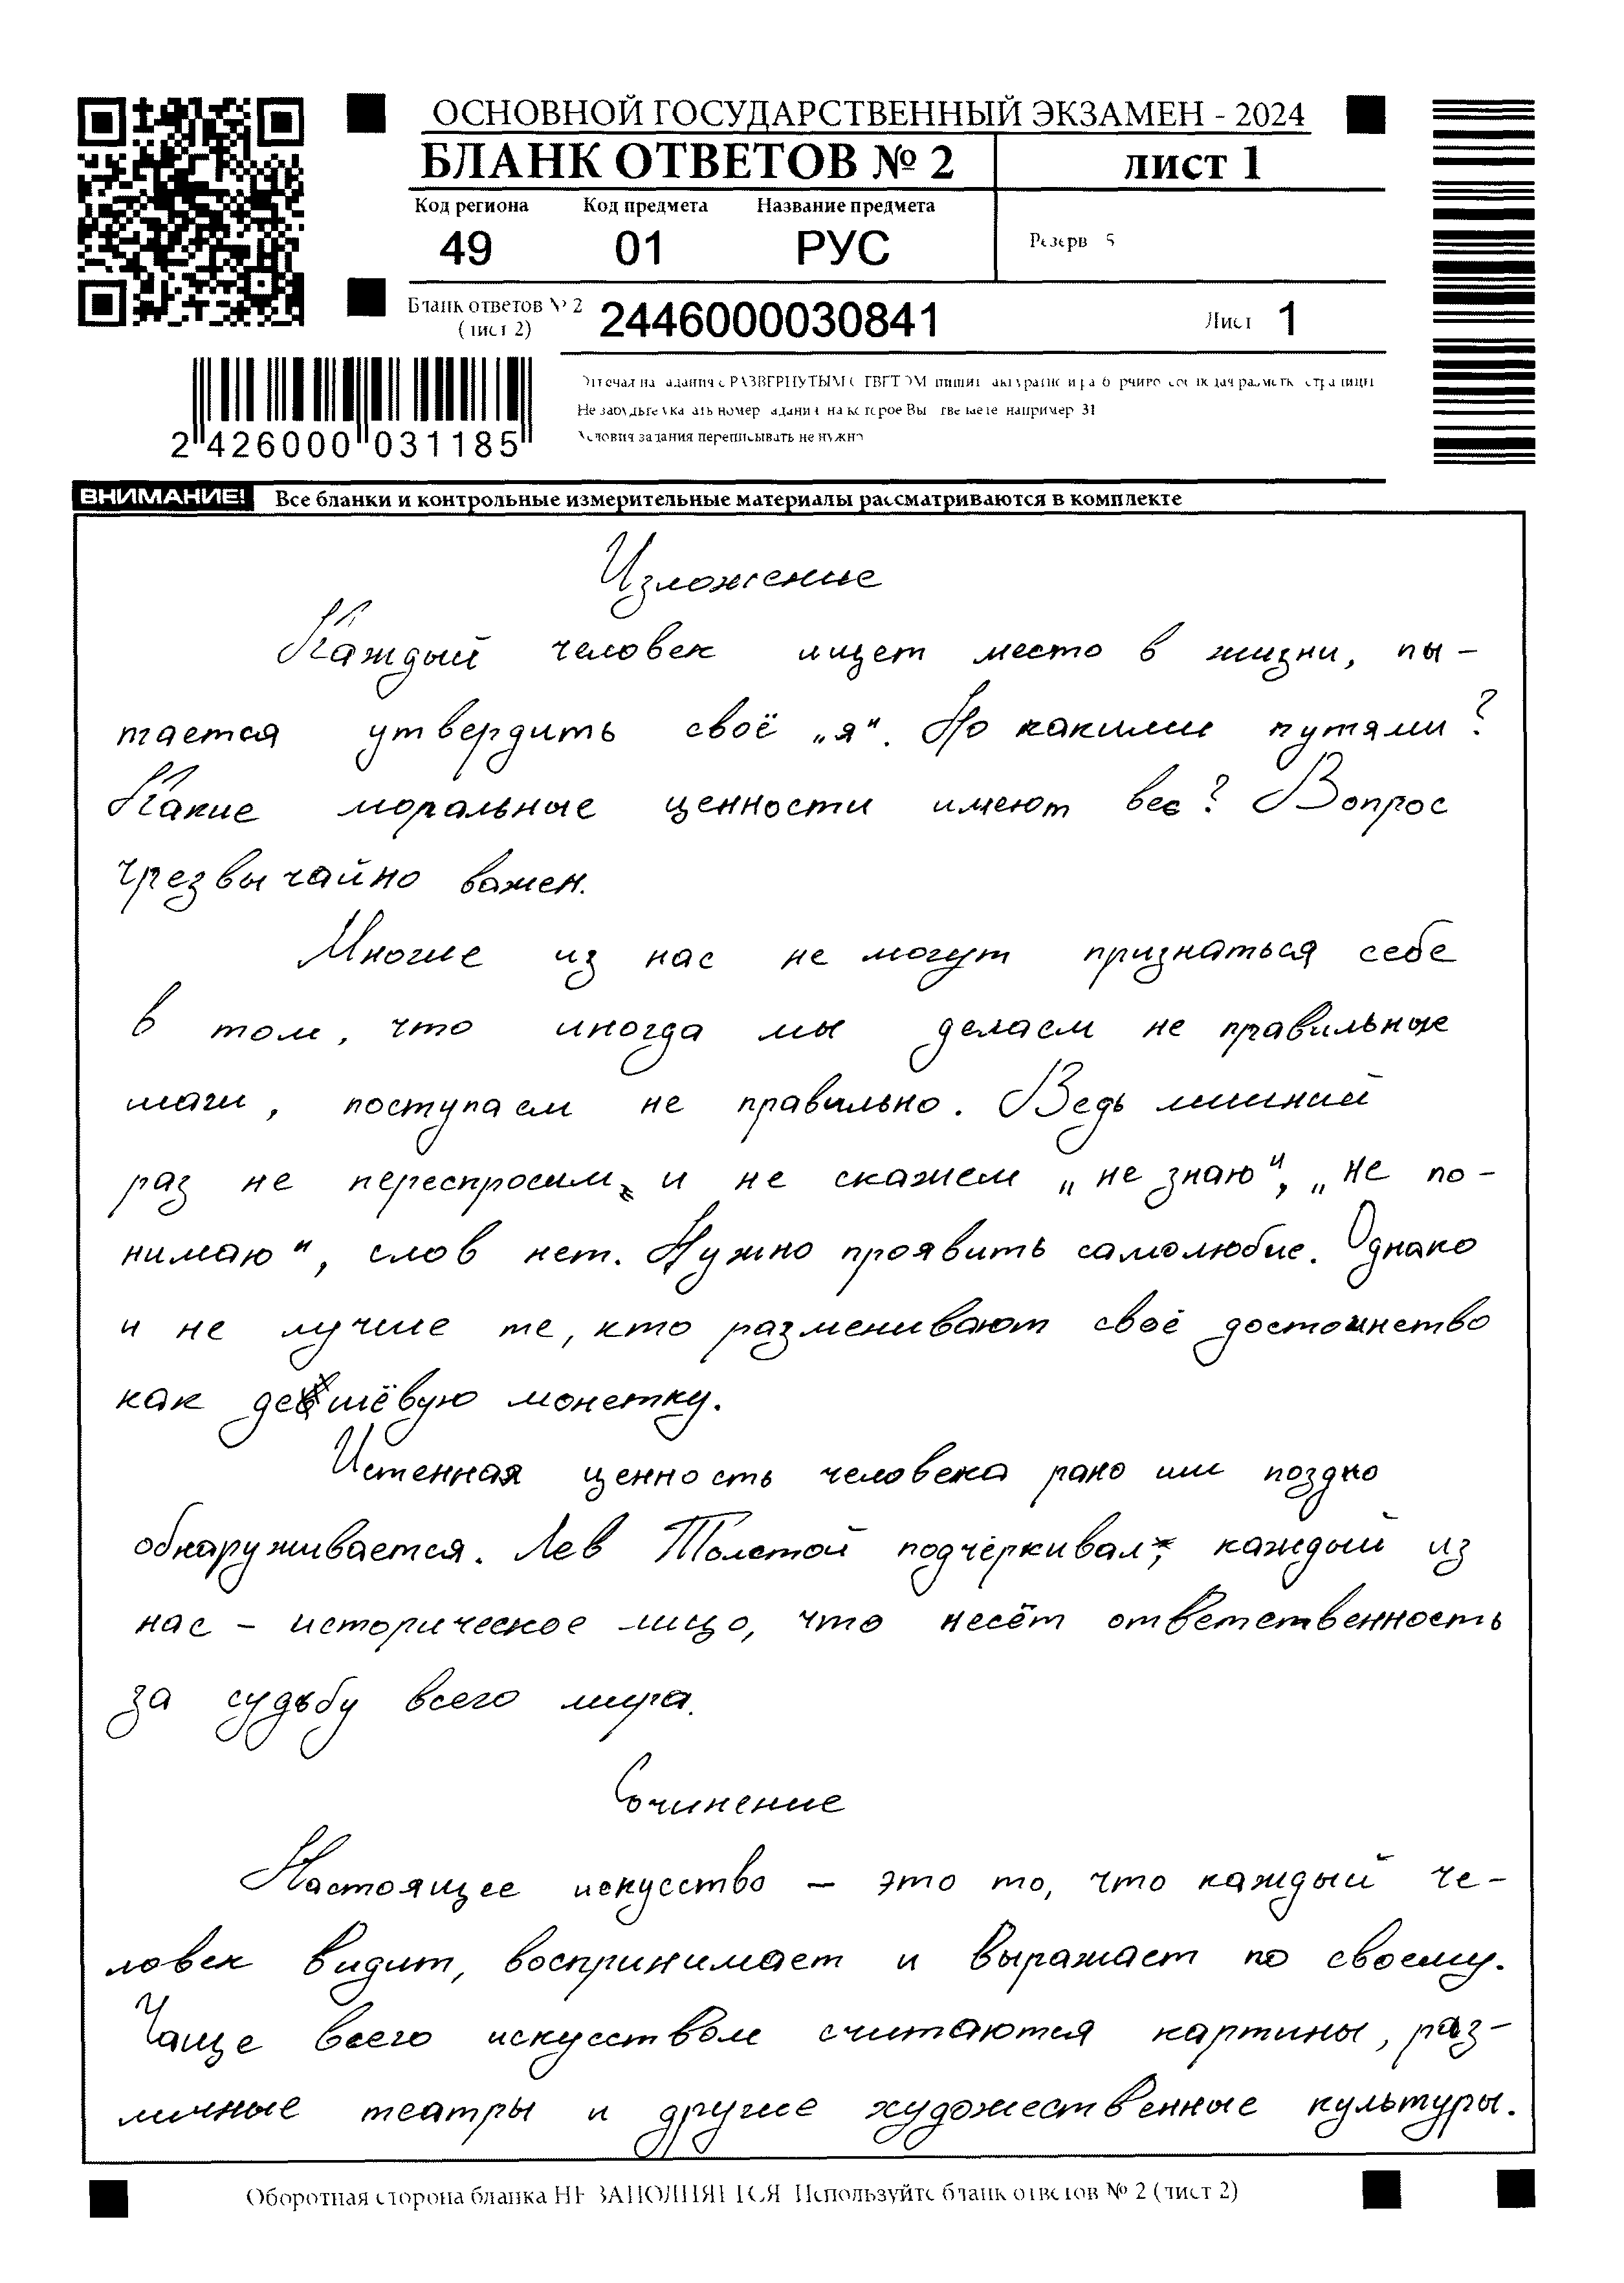 ОСНОВНОЙ ГОСУДАРСТВЕННЫЙ ЭКЗАМЕН - 2024
БЛАНК ОТВЕТОВ № 2
ЛИСТ 1
Код региона Код предмета Название предмета
49 01 РУС
Резерв 5
Бланк ответов № 2
(лист 2)
2446000030841
Лист 1
2 426000 031185
Отвечая на задания с РАЗВЕРНУТЫМ ОТВЕТОМ пишите аккуратно и разборчиво соблюдая разметку страницы
Не забудьте указать номер задания на которое Вы отвечаете например 31
Условия задания переписывать не нужно
ВНИМАНИЕ! Все бланки и контрольные измерительные материалы рассматриваются в комплекте
Изложение
Каждый человек ищет место в жизни, пы-
тается утвердить своё „я“. Но какими путями?
Какие моральные ценности имеют вес? Вопрос
чрезвычайно важен.
Многие из нас не могут признаться себе
в том, что иногда мы делаем не правильные
шаги, поступаем не правильно. Ведь лишний
раз не переспросим и не скажем „не знаю“, „не по-
нимаю“, слов нет. Нужно проявить самолюбие. Однако
и не лучше те, кто разменивают своё достоинство
как дешёвую монетку.
Истенная ценность человека рано или поздно
обнаруживается. Лев Толстой подчёркивал, каждый из
нас - историческое лицо, что несёт ответственность
за судьбу всего мира.
Сочинение
Настоящее искусство – это то, что каждый че-
ловек видит, воспринимает и выражает по своему.
Чаще всего искусством считаются картины, раз-
личные театры и другие художественные культуры.
Оборотная сторона бланка НЕ ЗАПОЛНЯЕТСЯ Используйте бланк ответов № 2 (лист 2)